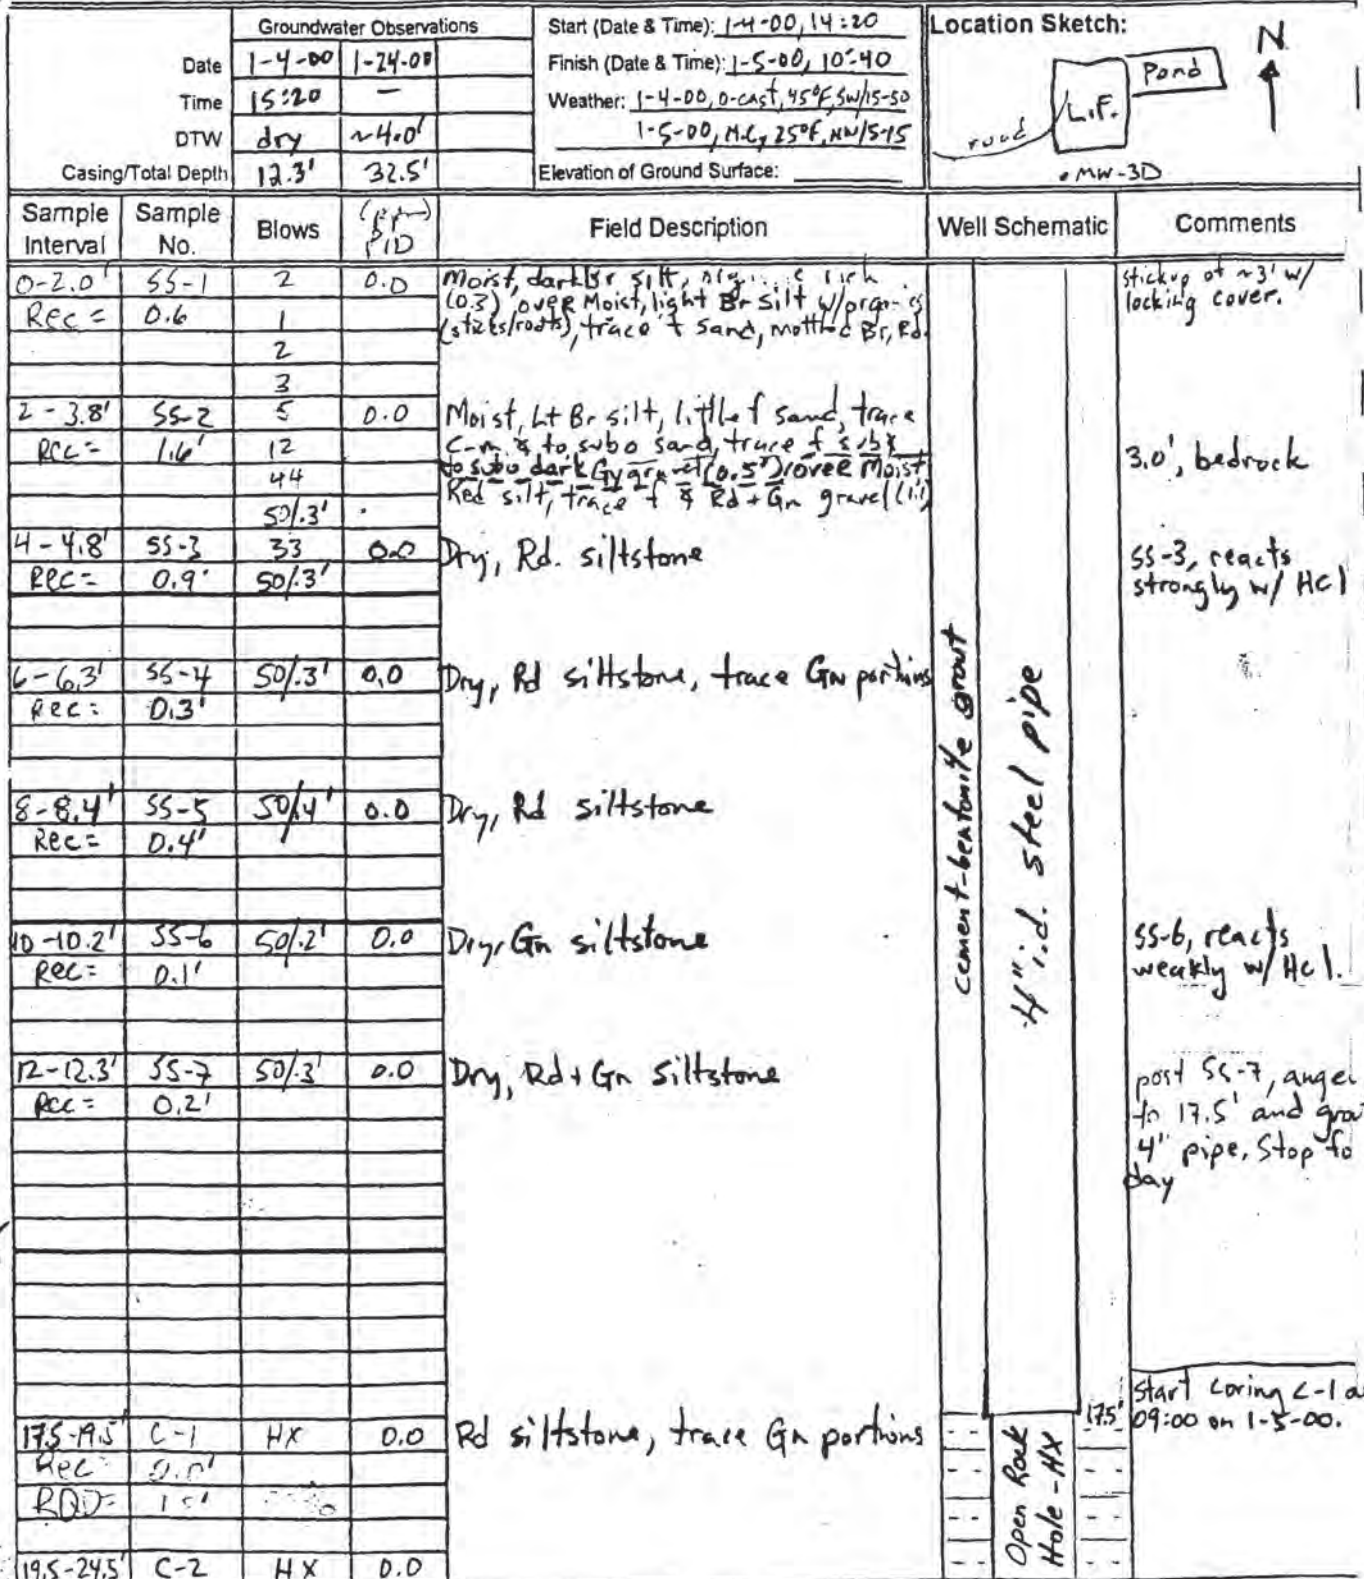 Groundwater Observations
Date 1-4-00 1-24-00
Time 15:20 —
DTW dry ~4.0'
Casing/Total Depth 12.3' 32.5'
Start (Date & Time): 1-4-00, 14:20
Finish (Date & Time): 1-5-00, 10:40
Weather: 1-4-00, O-cast, 45°F, SW/15-30
1-5-00, M.C, 25°F, NW/5-15
Elevation of Ground Surface:
Location Sketch:
N
Pond
L.F.
road
MW-3D
Sample Interval Sample No. Blows (ppm) PID Field Description Well Schematic Comments
0-2.0' SS-1 2 0.0 Moist, dark Br silt, rich
Rec = 0.6 1 (0.3), over Moist, light Br silt w/organics
(sticks/roots), trace f sand, mottled Br, Rd.
2
3
stickup of ~3' w/
locking cover.
2-3.8' SS-2 5 0.0 Moist, Lt Br silt, little f sand, trace
Rec = 1.6' 12 c-m. to subo sand, trace f
44 to subo dark Gy gravel (0.5') over Moist
50/.3' Red silt, trace f Rd + Gn gravel (1.1)
3.0', bedrock
4-4.8' SS-3 33 0.0 Dry, Rd. siltstone
Rec = 0.9' 50/.3'
SS-3, reacts
strongly w/ HCl
6-6.3' SS-4 50/.3' 0.0 Dry, Rd siltstone, trace Gn portions
Rec = 0.3'
8-8.4' SS-5 50/.4' 0.0 Dry, Rd siltstone
Rec = 0.4'
10-10.2' SS-6 50/.2' 0.0 Dry, Gn siltstone
Rec = 0.1'
SS-6, reacts
weakly w/ HCl.
12-12.3' SS-7 50/.3' 0.0 Dry, Rd + Gn siltstone
Rec = 0.2'
post SS-7, auger
to 17.5' and grou
4" pipe. Stop fo
day
cement-bentonite grout
4" i.d. steel pipe
17.5'
Start coring C-1 a
09:00 on 1-5-00.
17.5-19.5' C-1 HX 0.0 Rd siltstone, trace Gn portions
Rec
RQD=
Open Rock
Hole - HX
19.5-24.5' C-2 HX 0.0